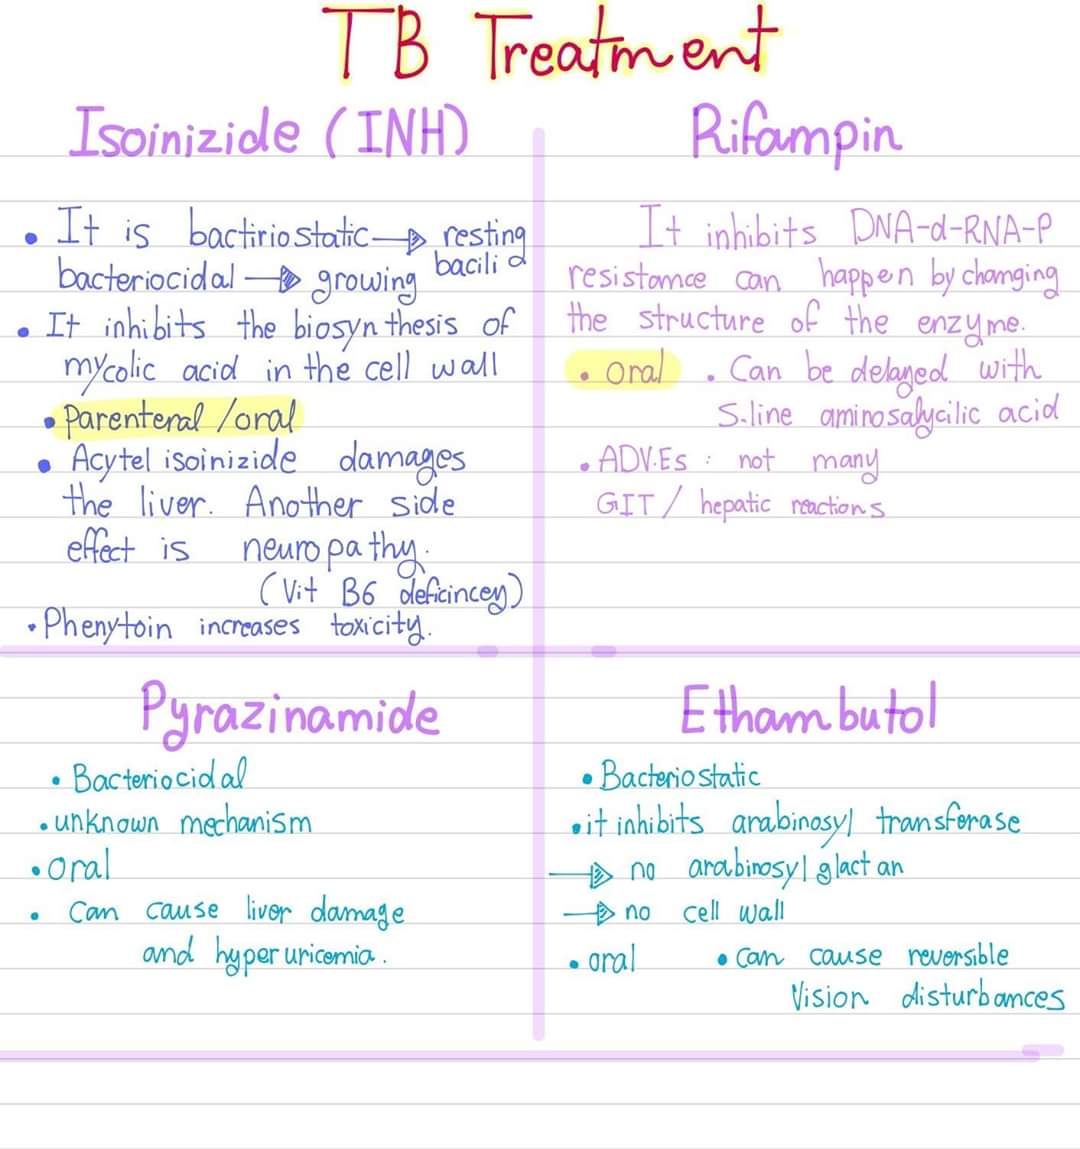 TB Treatment
Isoinizide (INH)
• It is bactiriostatic → resting
bacili
bacteriocidal → growing
• It inhibits the biosynthesis of
mycolic acid in the cell wall
• Parenteral / oral
• Acytel isoinizide damages
the liver. Another side
effect is neuropathy.
(Vit B6 deficincey)
• Phenytoin increases toxicity.
Rifampin
It inhibits DNA-d-RNA-P
resistance can happen by changing
the structure of the enzyme.
• oral • Can be delayed with
S.line aminosalycilic acid
• ADV.Es : not many
GIT / hepatic reactions
Pyrazinamide
• Bacteriocidal
• unknown mechanism
• oral
• Can cause liver damage
and hyperuricemia.
Ethambutol
• Bacteriostatic
• it inhibits arabinosyl transferase
→ no arabinosyl glactan
→ no cell wall
• oral • can cause reversible
Vision disturbances